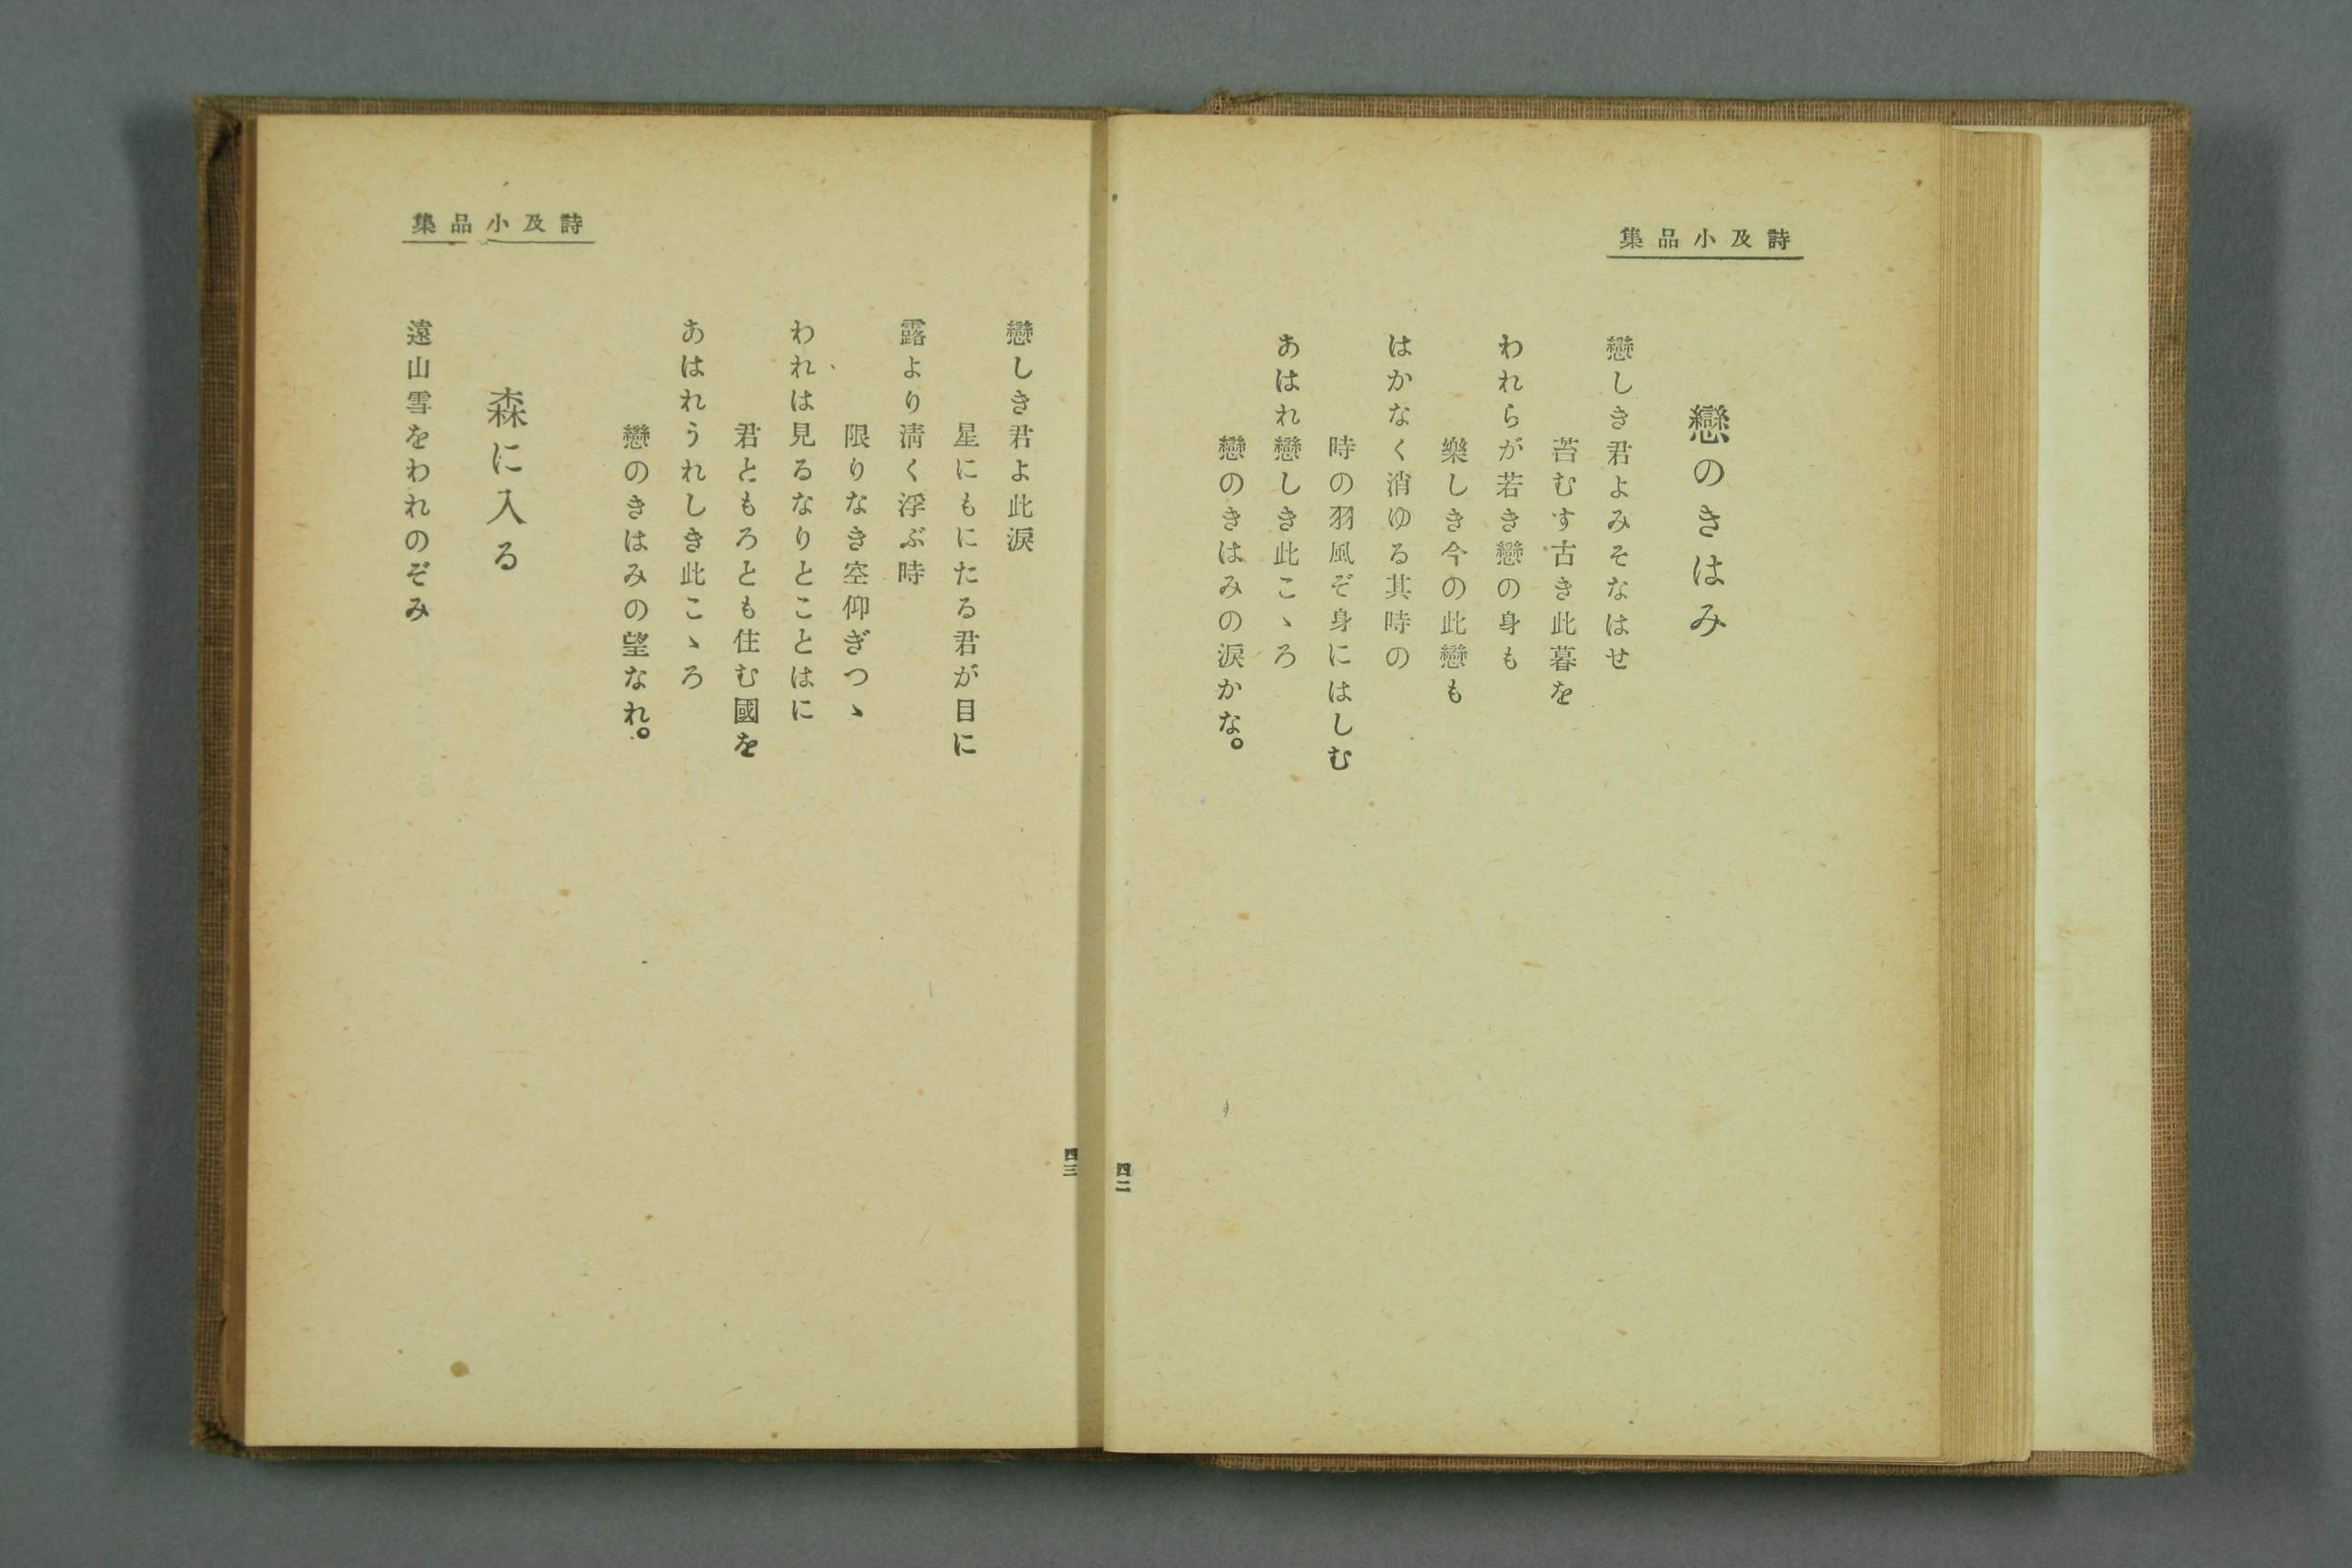 詩及小品集
戀のきはみ
戀しき君よみそなはせ
苔むす古き此暮を
われらが若き戀の身も
樂しき今の此戀も
はかなく消ゆる其時の
時の羽風ぞ身にはしむ
あはれ戀しき此こゝろ
戀のきはみの涙かな。
四二
詩及小品集
戀しき君よ此涙
星にもにたる君が目に
露より淸く浮ぶ時
限りなき空仰ぎつゝ
われは見るなりとことはに
君ともろとも住む國を
あはれうれしき此こゝろ
戀のきはみの望なれ。
森に入る
遠山雪をわれのぞみ
四三